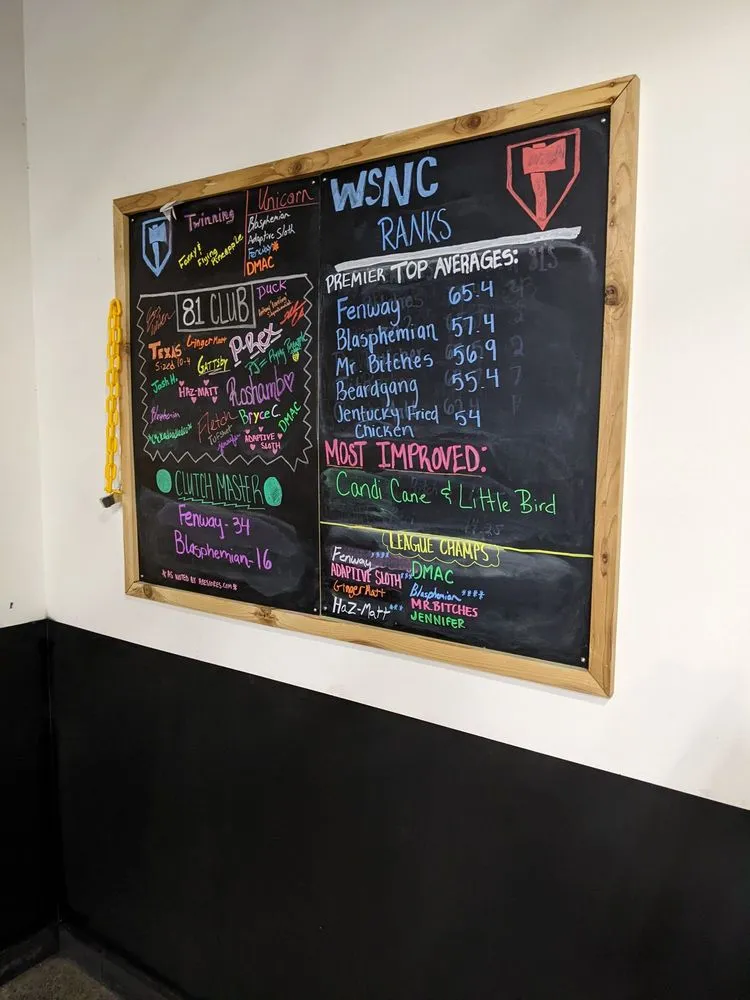 Twinning
Foxxy &
Flying Pineapple
Unicorn
Blasphemian
Adaptive Sloth
Fenway*
DMAC
81 CLUB
DUCK
TEXAS
Sized 10-4
GingerMatt
GATTSby
P-Rex
Josh H.
HAZ-MATT
Roshambo
Blasphemian
Fletch
BryceC
DMAC
Jennifer
ADAPTIVE
SLOTH
CLUTCH MASTER
Fenway - 34
Blasphemian - 16
WSNC
RANKS
PREMIER TOP AVERAGES:
Fenway 65.4
Blasphemian 57.4
Mr. Bitches 56.9
Beardgang 55.4
Jentucky Fried 54
Chicken
MOST IMPROVED:
Candi Cane & Little Bird
LEAGUE CHAMPS
Fenway****
ADAPTIVE SLOTH***
GingerMatt
HaZ-Matt***
DMAC
Blasphemian****
MR.BITCHES
JENNIFER